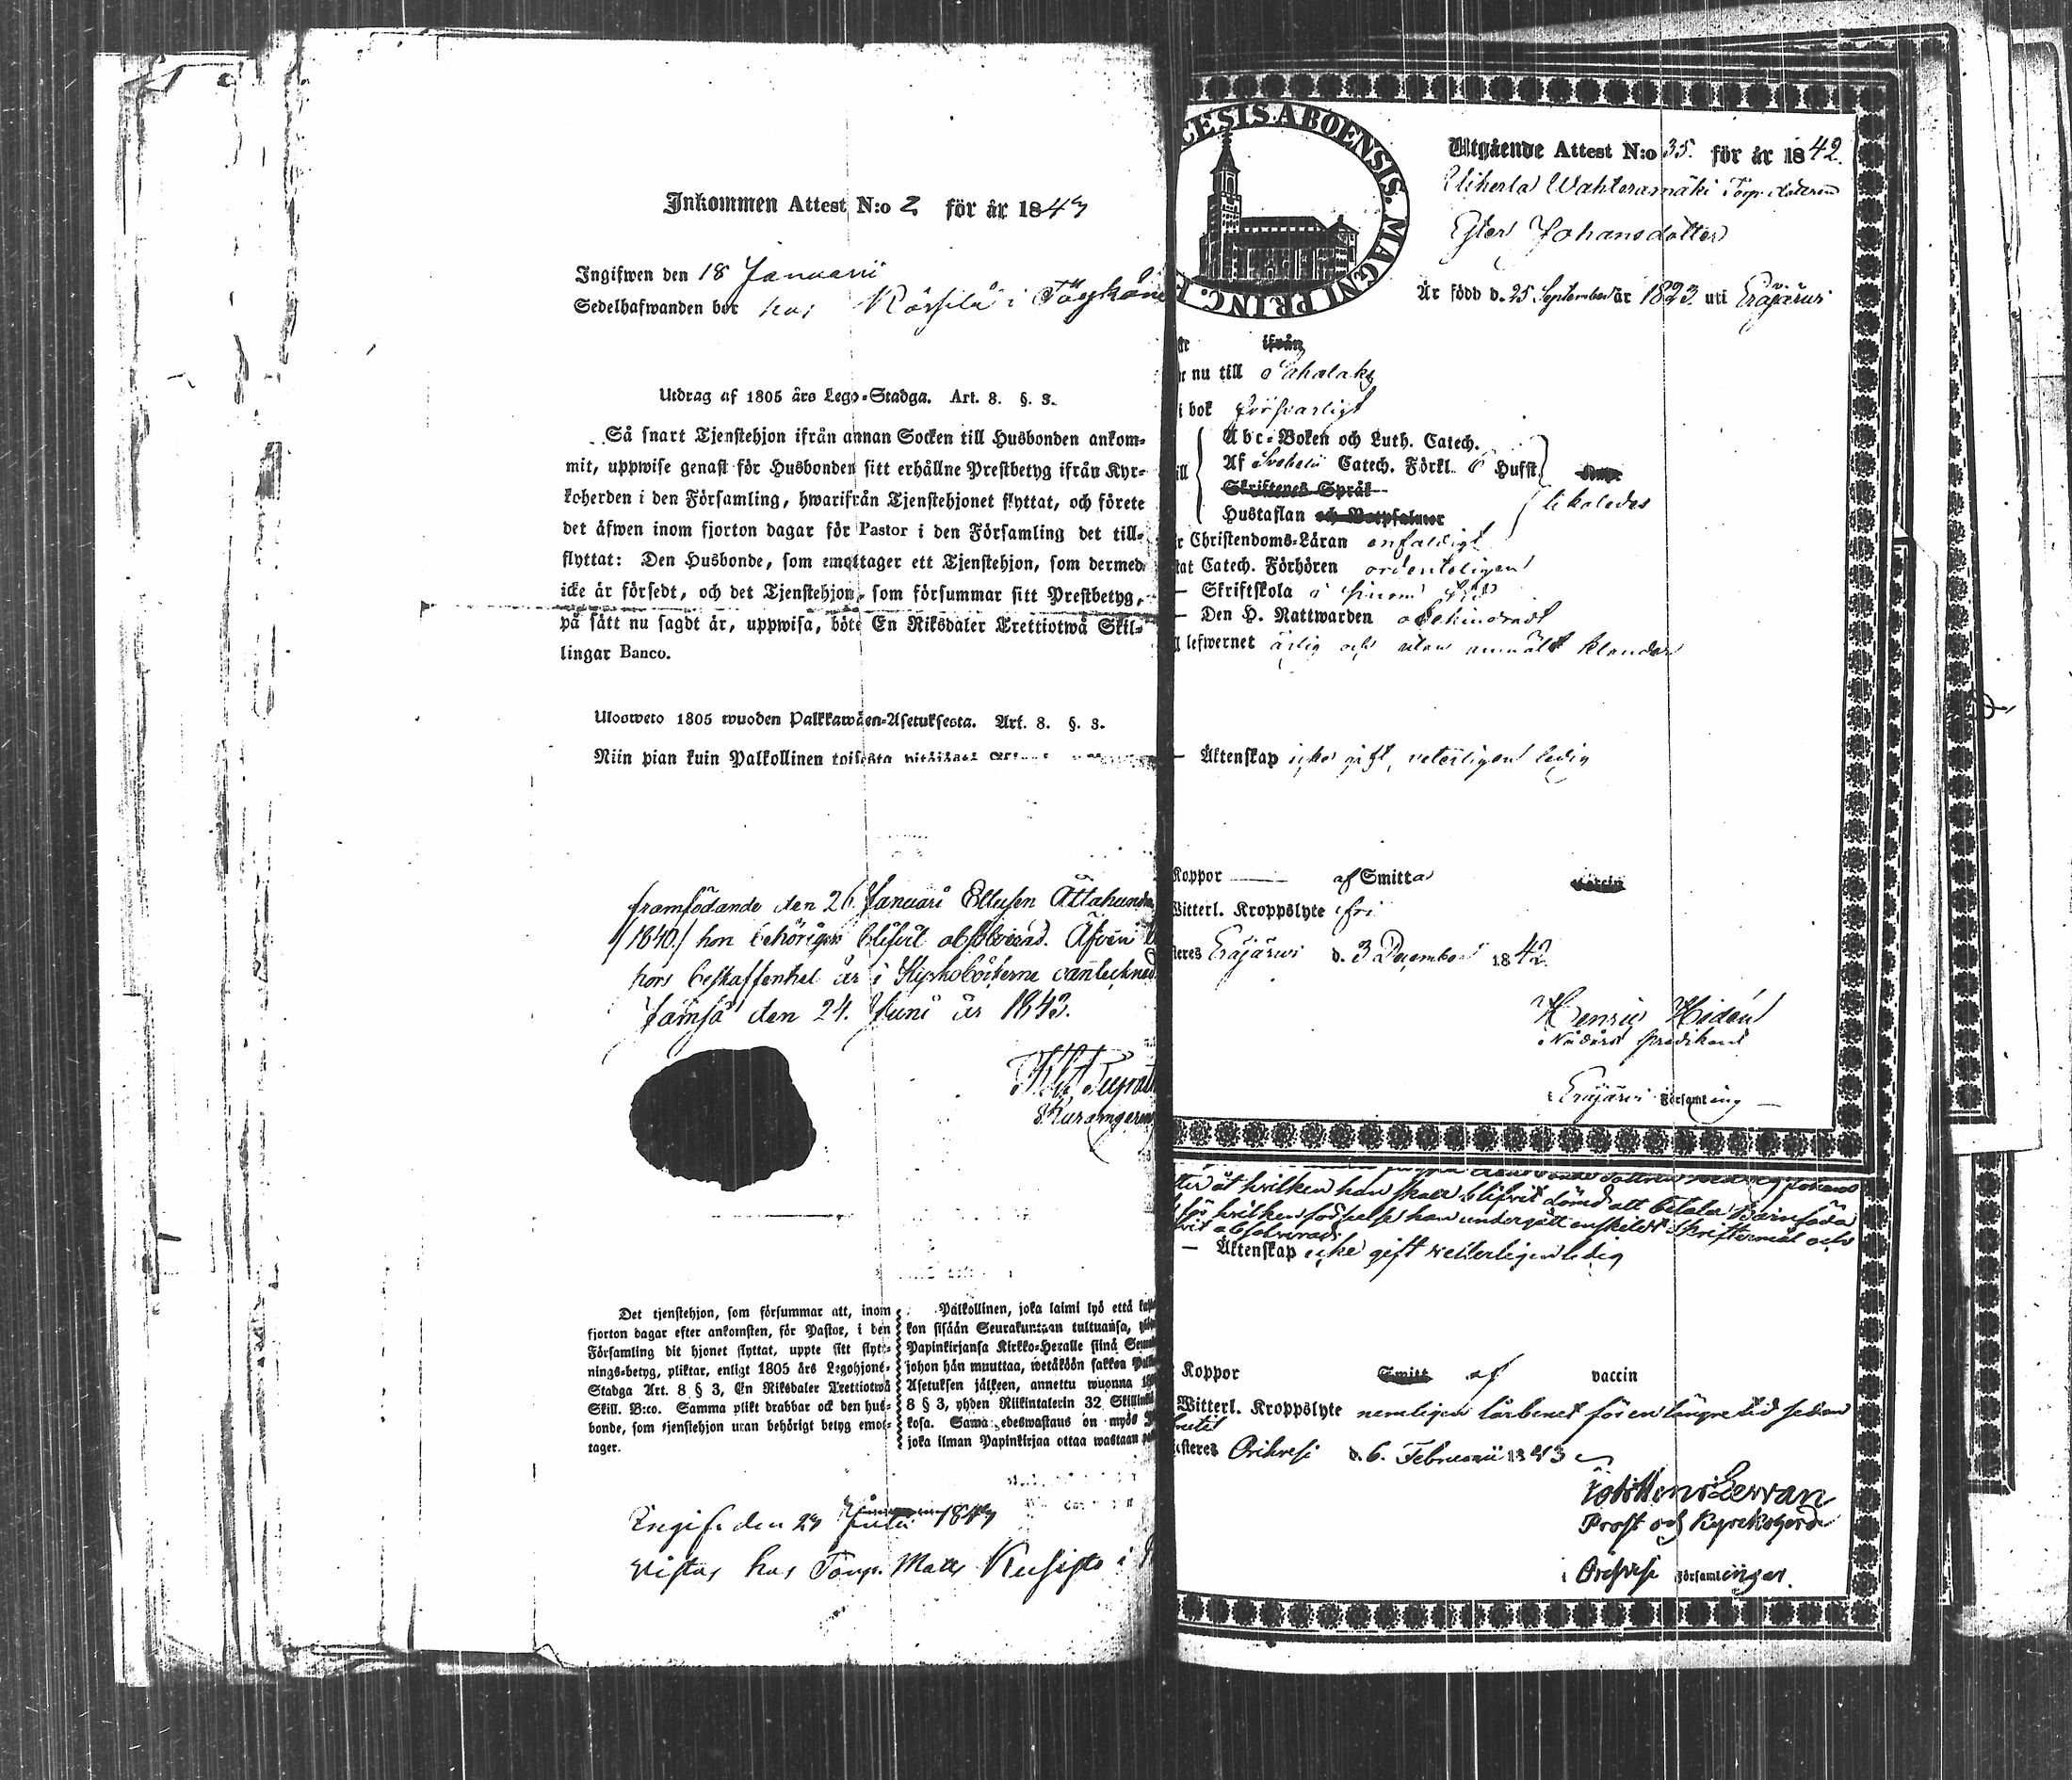 Inkommen Attest N:o 2 för år 1843
Ingifwen den 18 Januarii
Sedelhafwanden bor hos Körsilä i
Utdrag af 1805 års Lego-Stadga. Art. 8. §. 3.
Så snart Tjenstehjon ifrån annan Socken till Husbonden ankom-
mit, uppwise genast för Husbonden sitt erhållne Prestbetyg ifrån Kyr-
koherden i den Församling, hwarifrån Tjenstehjonet flyttat, och förete
det äfwen inom fjorton dagar för Pastor i den Församling det till-
flyttat: Den Husbonde, som emottager ett Tjenstehjon, som dermed
icke är försedt, och det Tjenstehjon, som försummar sitt Prestbetyg,
på sätt nu sagdt är, uppwisa, böte En Riksdaler Trettiotwå Skil-
lingar Banco.
Ulosweto 1805 wuoden Palkkawäen-Asetuksesta. Art. 8. §. 3.
Niin pian kuin Palkollinen toisesta
framfödande den 26 Januari Ettusen Åttahundra
/1840/ hon behörigen blifvit absolverad. Äfven
hors beskaffenhet är i Kyrkoböckerne antecknad
Jämsä den 24. Juni år 1843.
Det tjenstehjon, som försummar att, inom
fjorton dagar efter ankomsten, för Pastor, i den
Församling dit hjonet flyttat, uppte sitt flytt-
nings-betyg, pliktar, enligt 1805 års Legohjons-
Stadga Art. 8 § 3, En Riksdaler Trettiotwå
Skill. B:co. Samma plikt drabbar ock den hus-
bonde, som tjenstehjon utan behörigt betyg emot-
tager.
Palkollinen, joka laimi lyö että
kon sisään Seurakuntaan tultuansa,
Papinkirjansa Kirkko-Heralle siinä
johon hän muuttaa, wetäköön sakkoa
Asetuksen jälkeen, annettu wuonna
8 § 3, yhden Riikintalerin 32
kosa. Sama edeswastaus on myös
joka ilman Papinkirjaa ottaa wastaan
Ingifv. den 23 Julii 1843
vistas hos Torp. Matts Kusisto i
CESIS ABOENSIS. MAGNI PRINC.
Utgående Attest N:o 35. för år 1842.
Uiherla Wahteramäki
Ester Johansdotter
Är född d. 25 September år 1823. uti Eräjärvi
ifrån
nu till Sahalaks
i bok försvarligt
Abc-Boken och Luth. Catech.
Af Svebelii Catech. Förkl. 6 Hufst.
Skriftenes Språk
Hustaflan och Botpsalmer
likaledes
Christendoms-Läran enfaldigt
Catech. Förhören ordenteligen
— Skriftskola i sinom tid
— Den H. Nattwarden obehindradt
lefwernet ärlig och utan anmäldt klander
— Äktenskap icke gift, veterligen ledig
Koppor —— af Smitta
vaccin
Witterl. Kroppslyte fri
Eräjärvi d. 3 December 1842.
Henric Hedén
Nådårs Predikant
i Eräjärvi Församling
åt hvilken han skall blifvit dömd att betala barnföda
för hvilken förseelse han undergått enskildt skriftermål och
absolverad.
— Äktenskap icke gift vetterligen ledig
Koppor Smitt af vaccin
Witterl. Kroppslyte nemligen lårbenet för en längre tid sedan
Orihvesi d. 6. Februarii 1843
Prost och Kyrckoherde
i Orihvesi Församlingar.